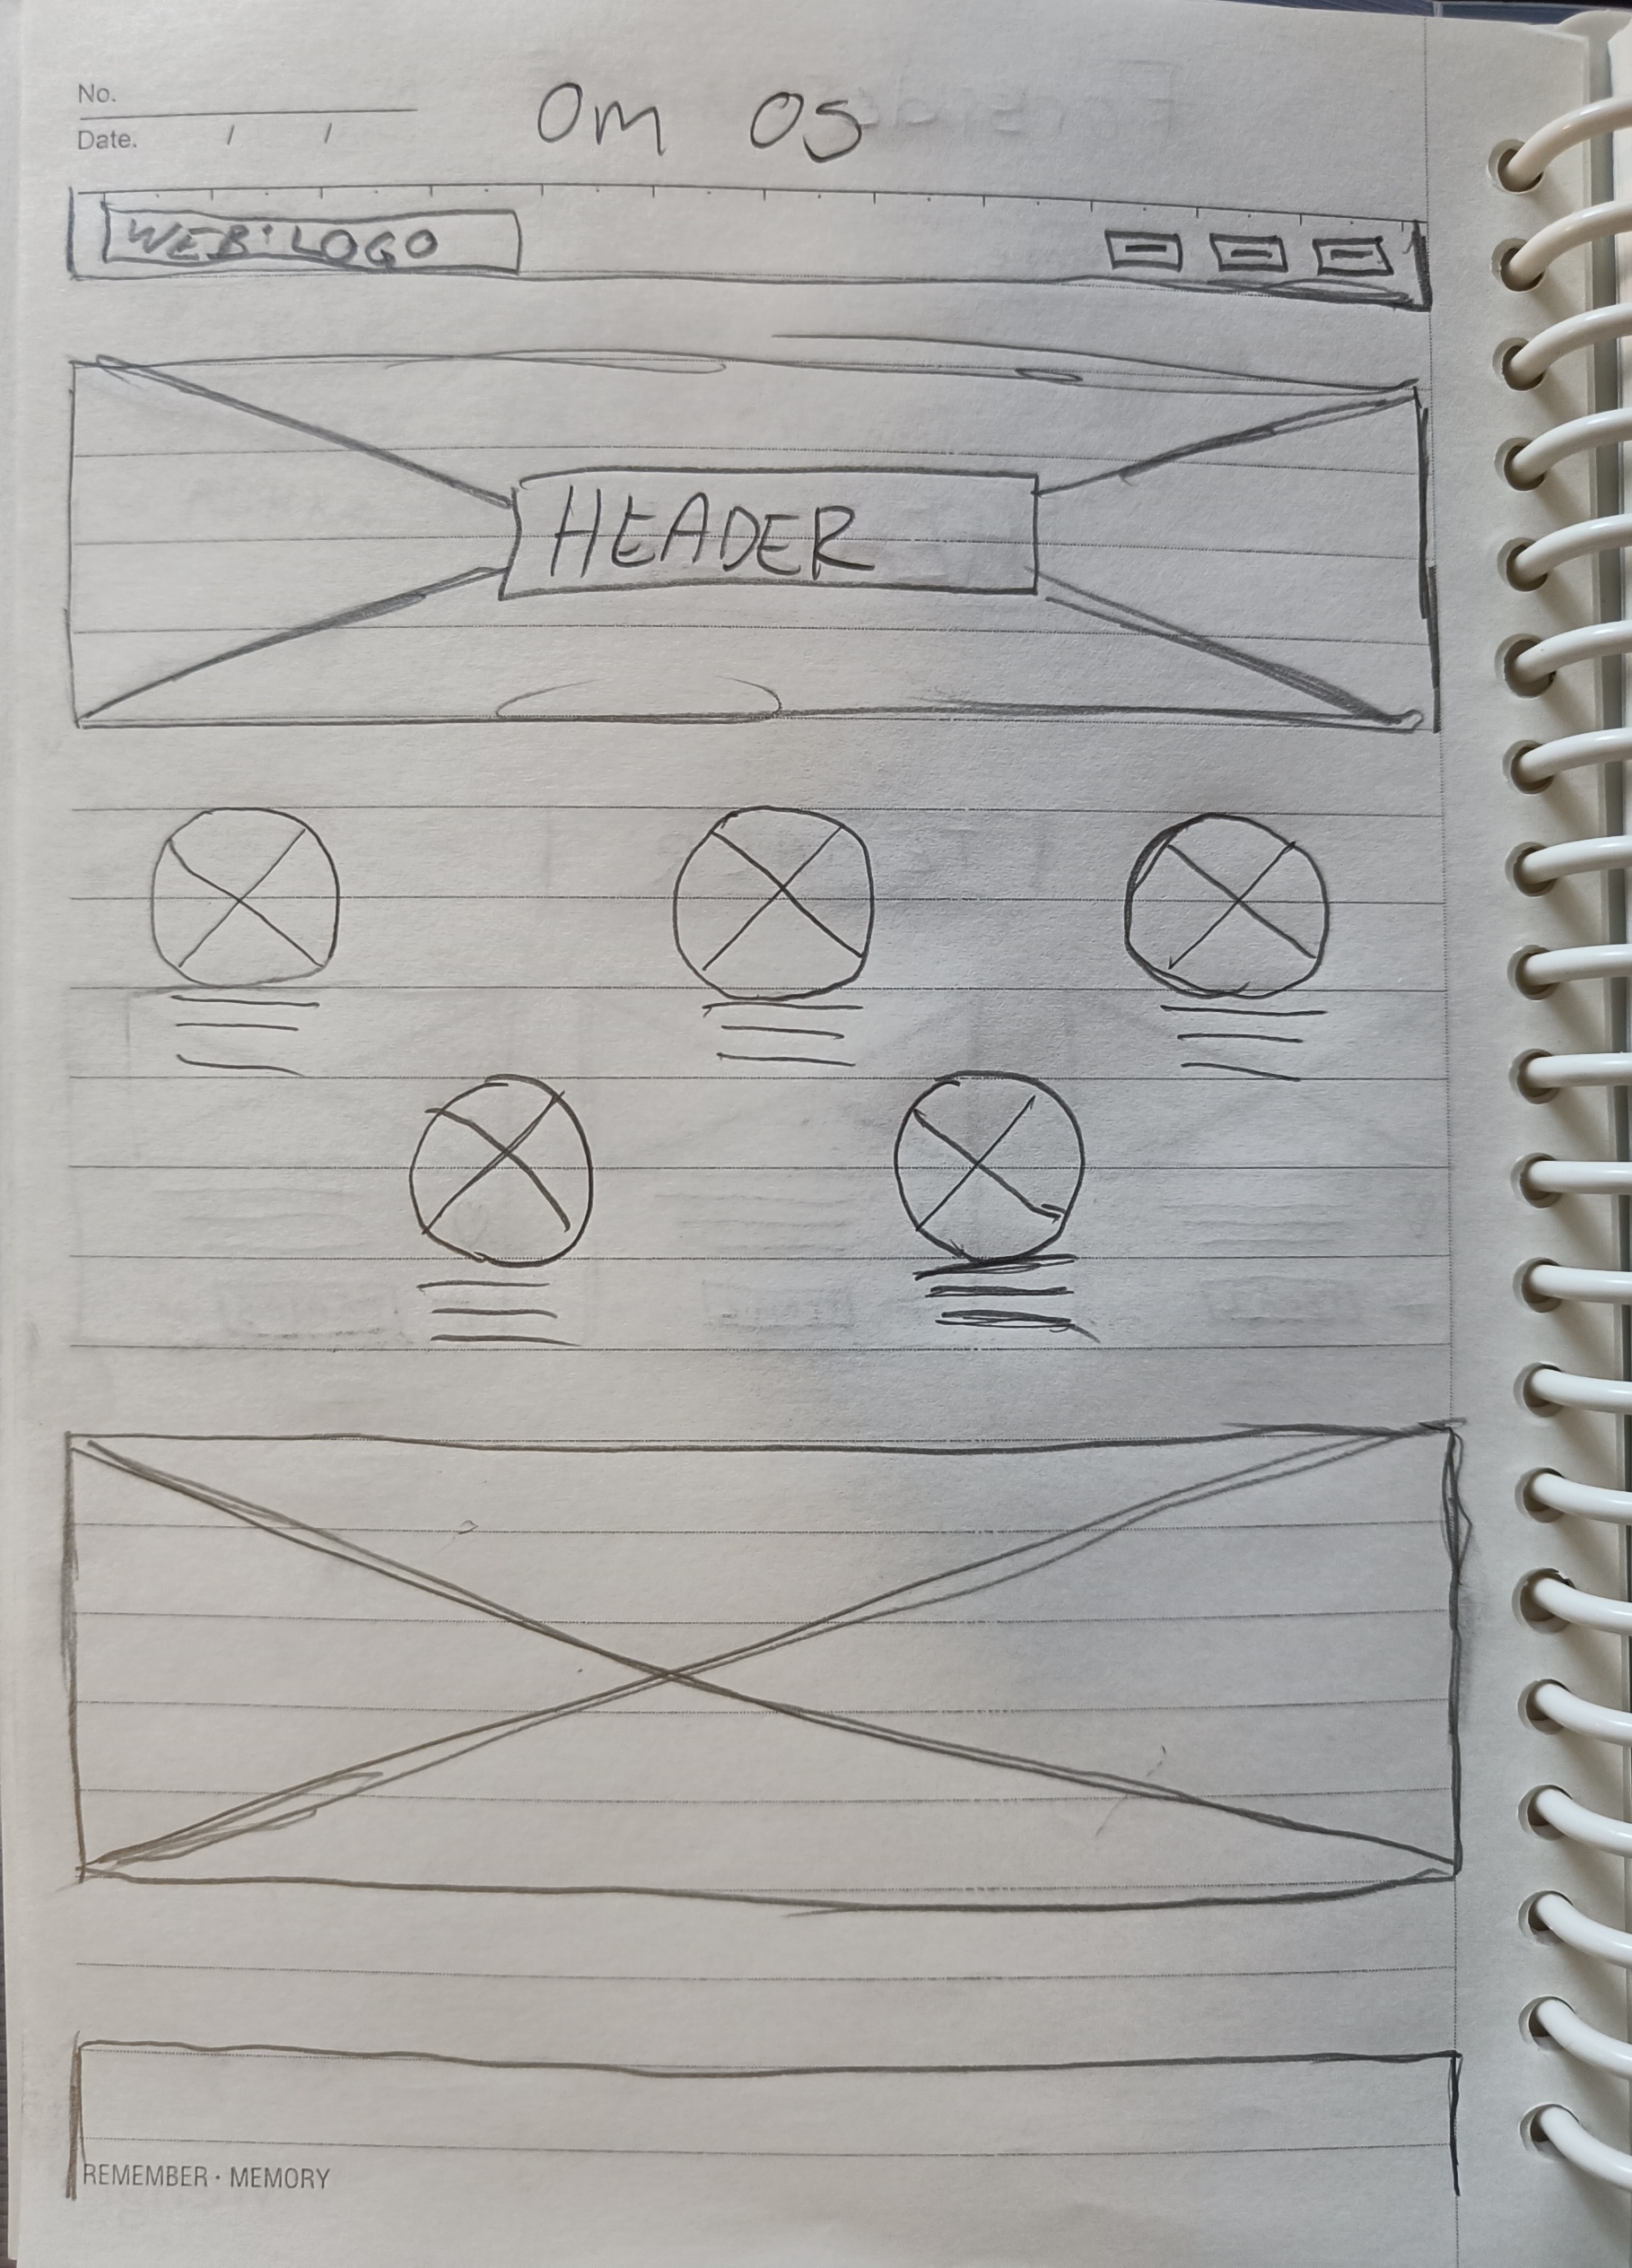 No.
Date. / /
Om OS
WEB: LOGO
HEADER
REMEMBER · MEMORY